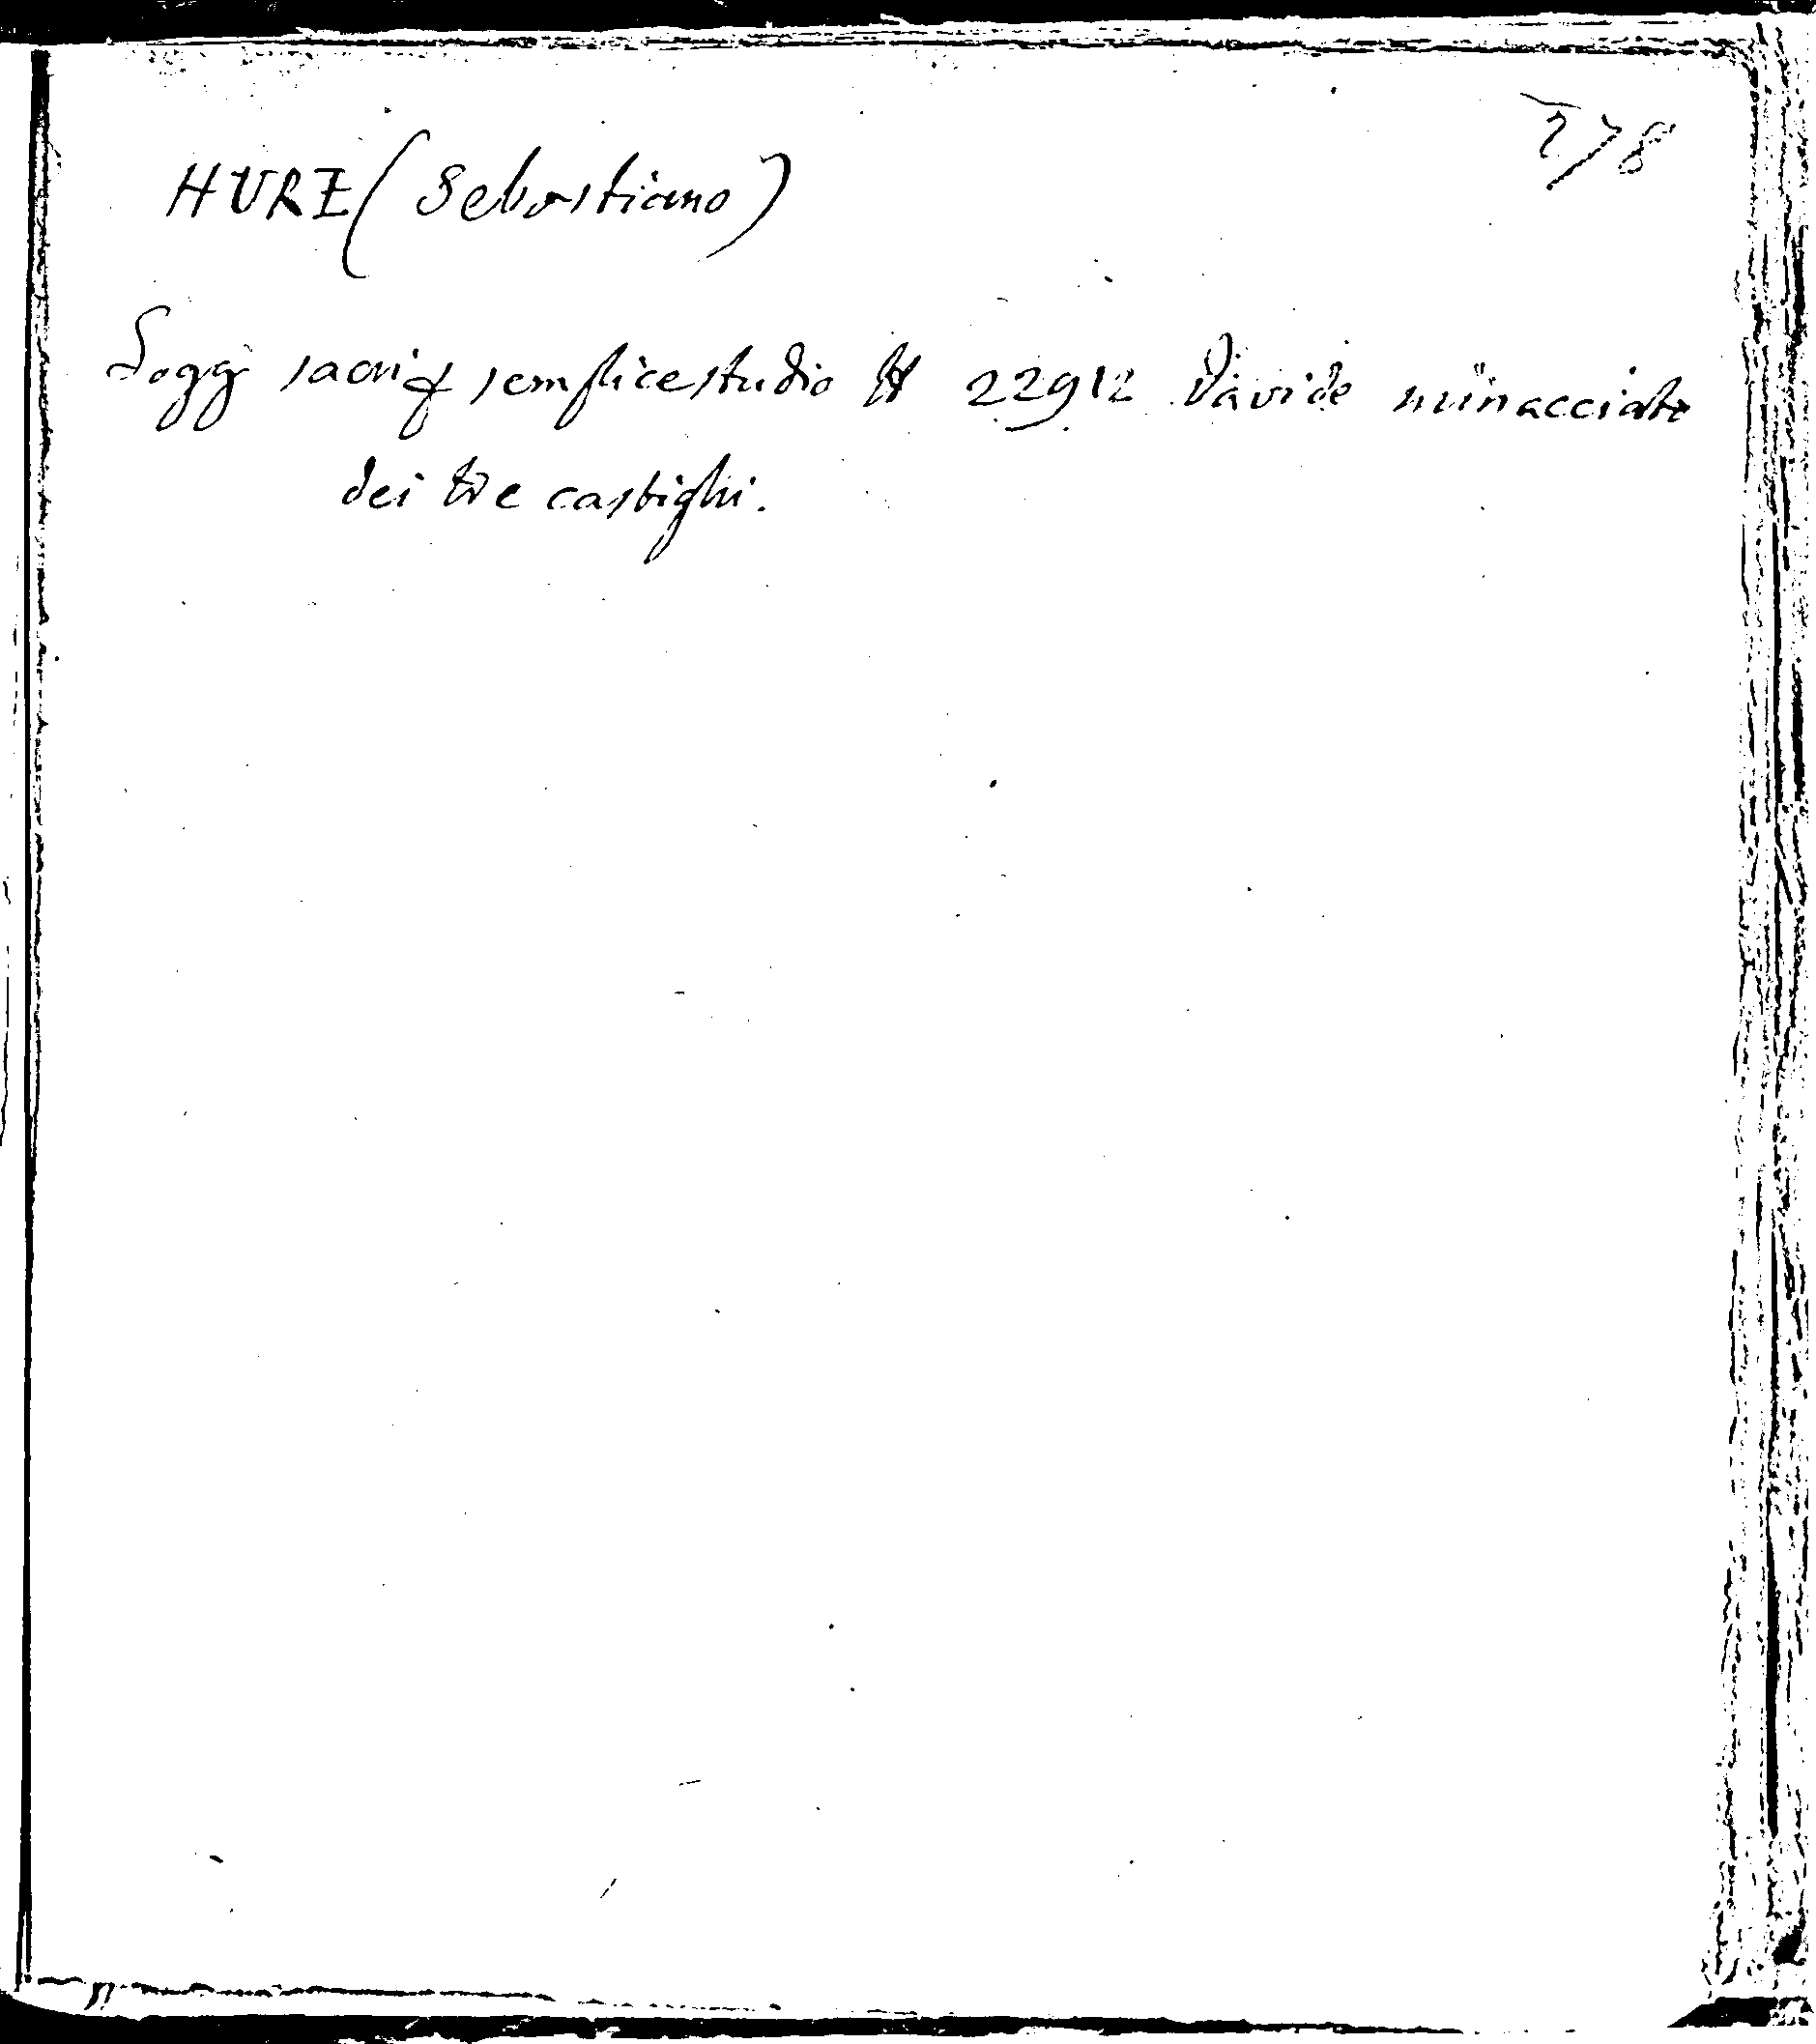 278
HURZ (Sebastiano)
Sogg sacri semplice studio 22912 Davide minacciato
dei tre castighi.